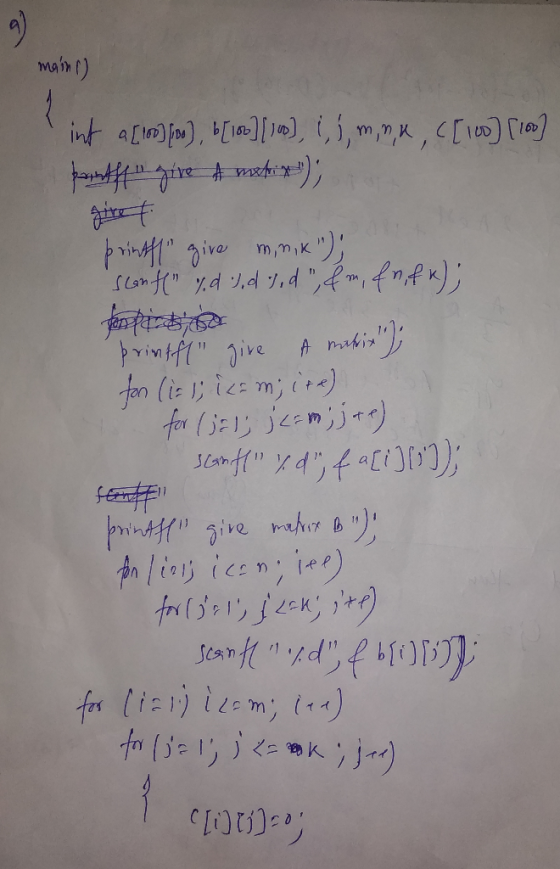 a)
main()
{
int a[100][100], b[100][100], i, j, m, n, k, c[100][100]
printf(" give A matrix");
give (
printf(" give m,n,k");
scanf(" %d %d %d", &m, &n, &k);
printf(" give A matrix");
for (i=1; i<=m; i++)
for (j=1; j<=m; j++)
scanf(" %d", & a[i][j]);
scanf("
printf(" give matrix B ");
for (i=1; i<=n; i++)
for(j=1; j<=k; j++)
scanf( " %d", & b[i][j]);
for (i=1; i<=m; i++)
for (j=1; j<= k; j++)
{
c[i][j]=0;